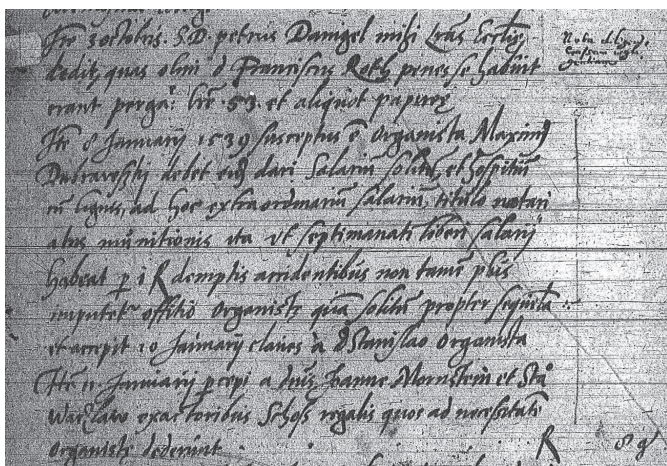 Ite 3 octobris. S.D. petrus Damgel mihi lras Ecclie
dedit, quas olim d Franciscus Roth penes se habuit
erant perga: lre 53. et aliquot papiree
Nota
Ite 8 Januarij 1539 susceptus e Organista Maximus
debet eidem dari Salariu solitu, et hospitiu
cu lignis, ad hoc extraordinariu salariu, titulo notari
atus munitionis ita vt septimanati liberi salarij
habeat p i R demptis accidentibus non tame plus
imputet offitio Organiste qua solitu propter sequela
et accepit 10 Januarij claues a d Stanislao Organista
Ite 11 Januarij pcepi a dnis Joanne Mornstein et Sta
Waczlaw exactoribus Schoss regalis quos ad necessitate
Organiste dederunt
R 8 g